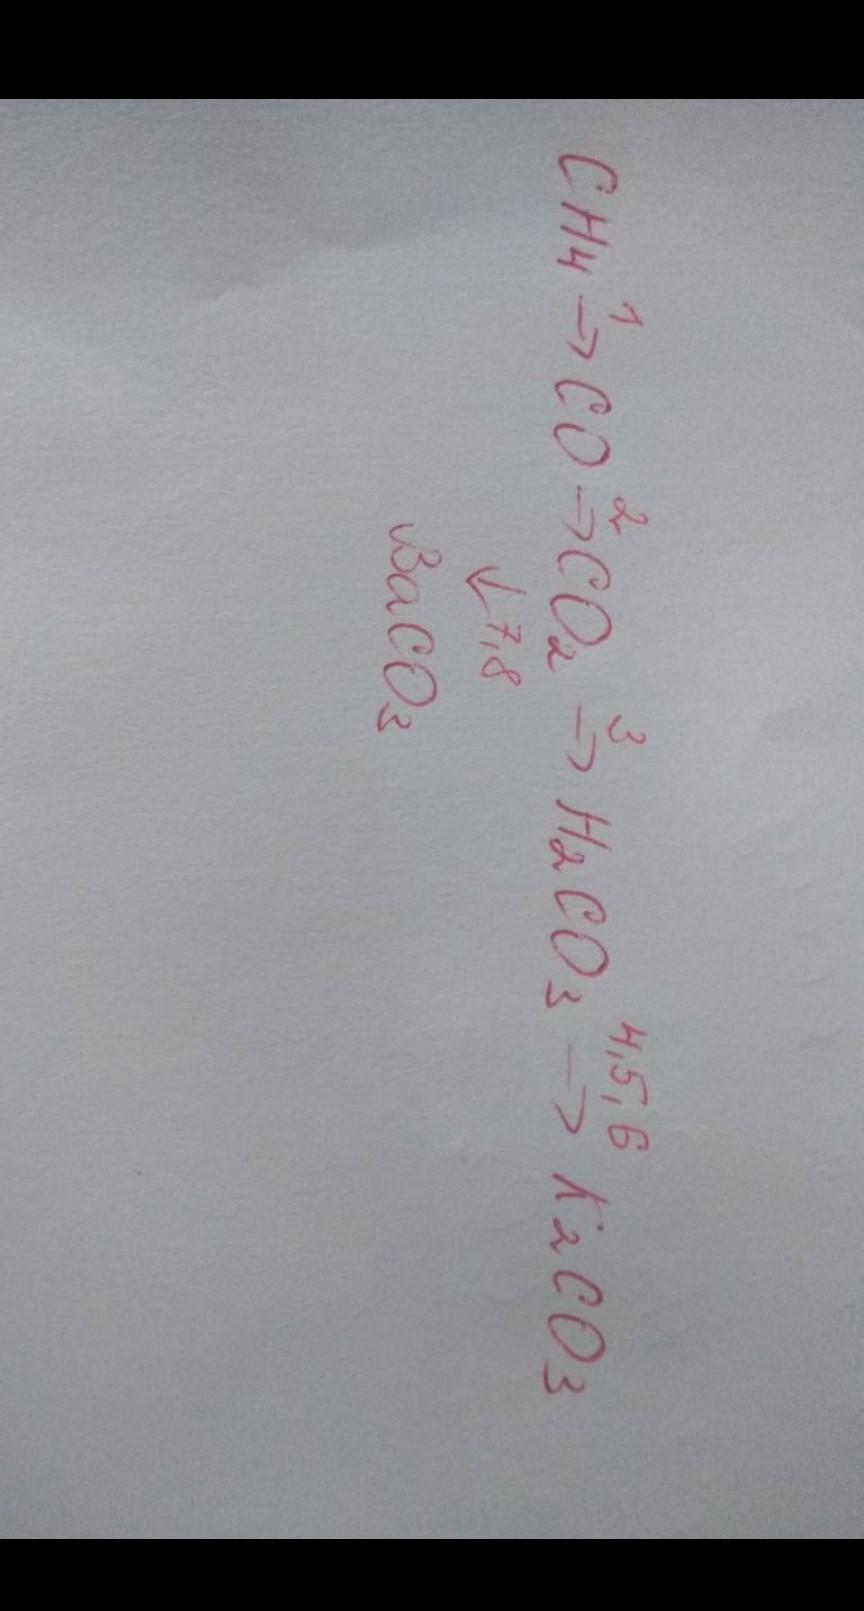 CH₄ →¹ CO →² CO₂ →³ H₂CO₃ →⁴,⁵,⁶ K₂CO₃
↓ 7,8
BaCO₃